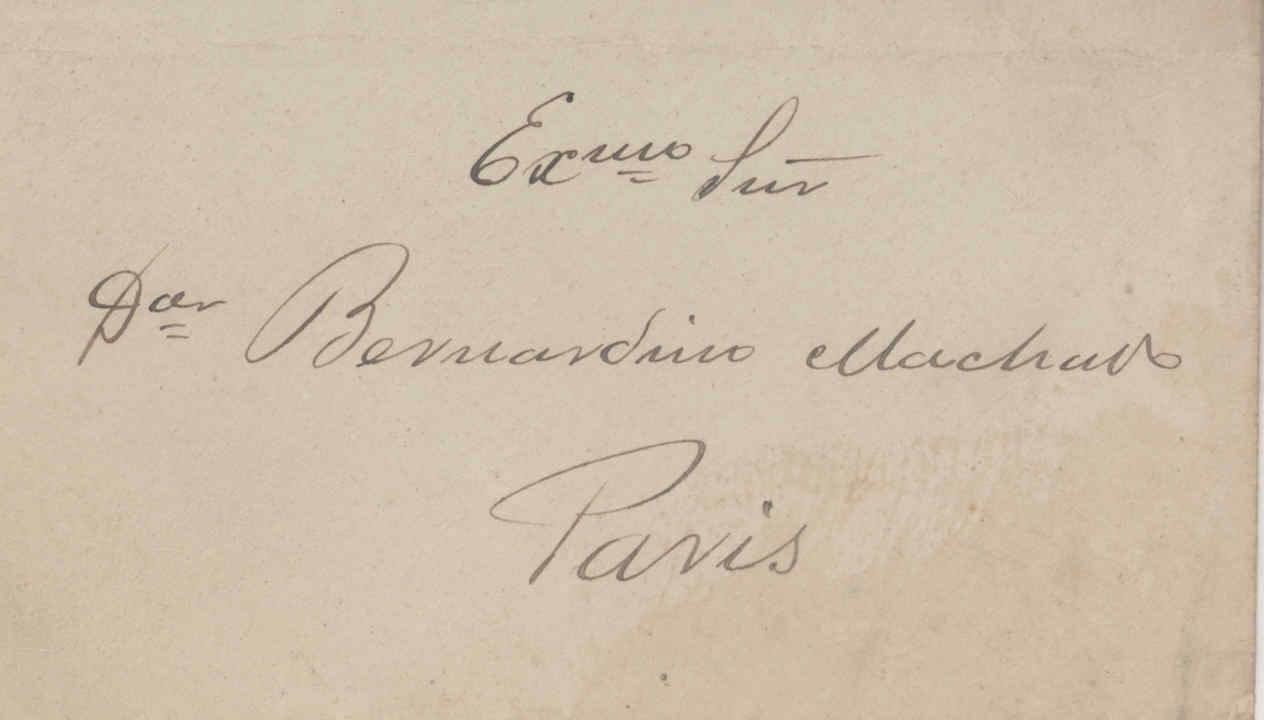 Exmo Snr
Dor Bernardino Machado
Paris